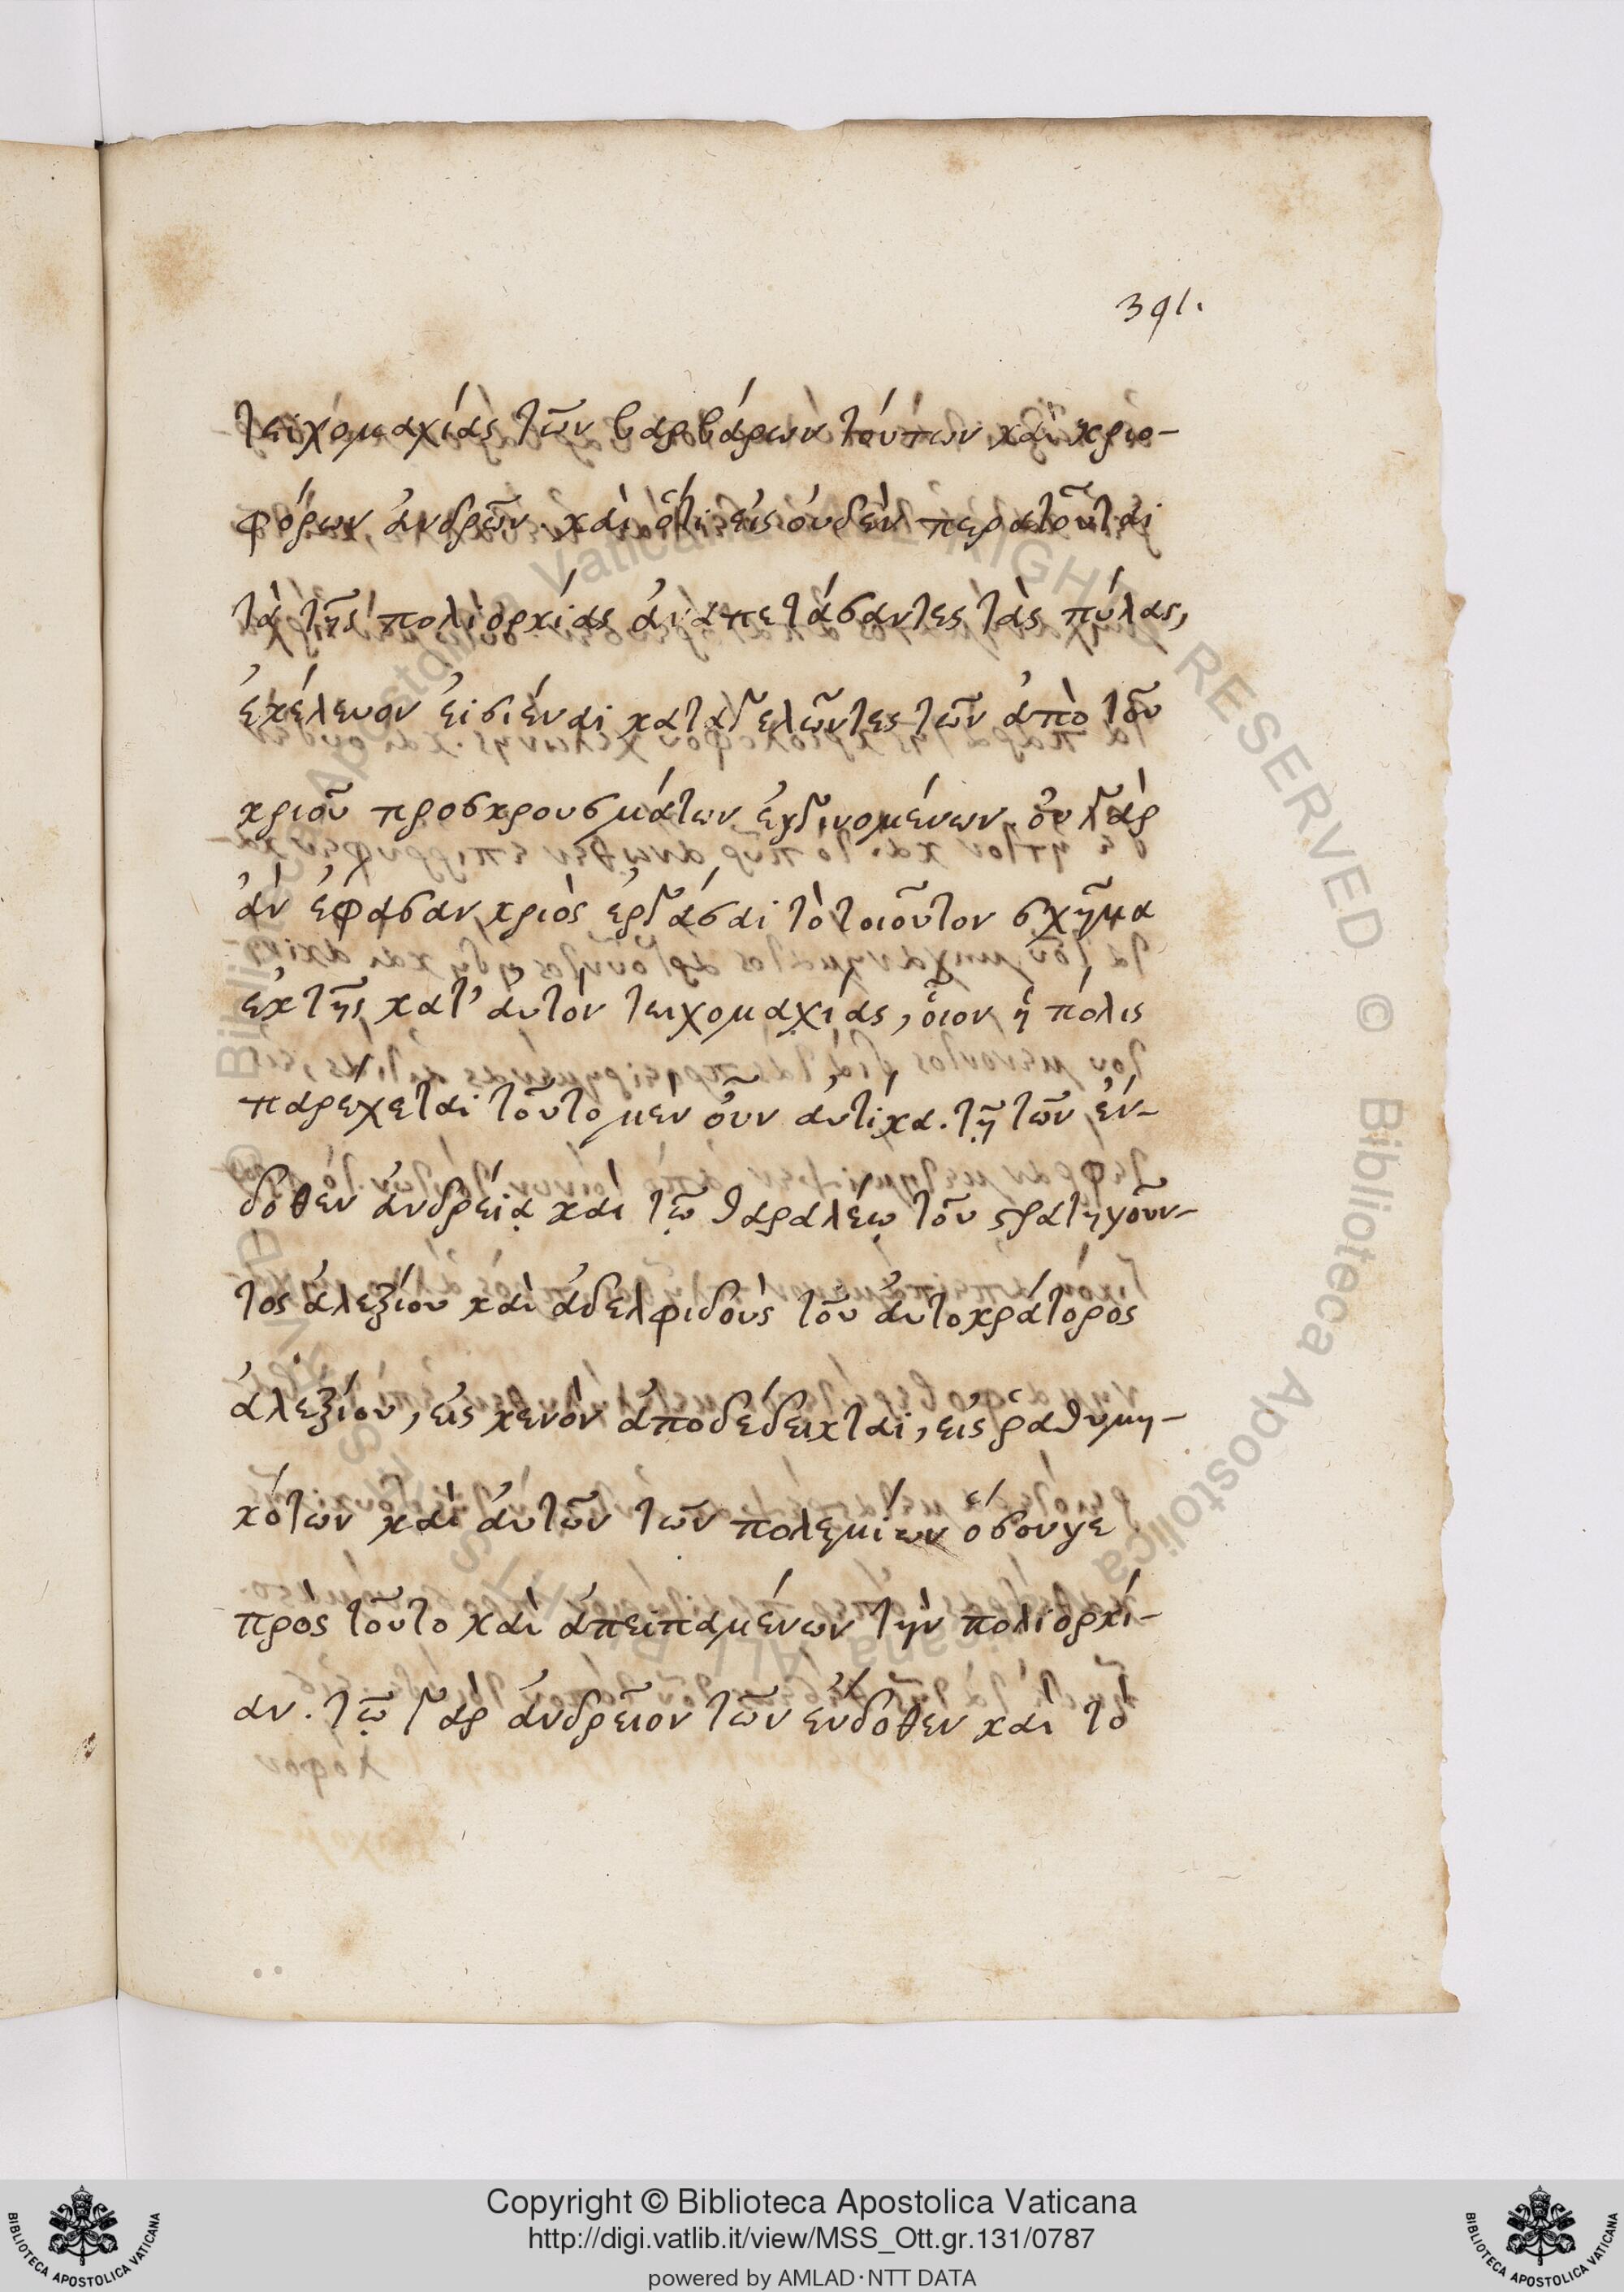 391.
τειχομαχίας τῶν βαρβάρων τούτων καὶ κριο-
φόρων ἀνδρῶν. καὶ ὅτι εἰς ουδὲν περατοῦται
τὰ τῆς πολιορκίας ἀναπετάσαντες τὰς πύλας,
ἐκέλευον εἰσιέναι καταγελῶντες τῶν ἀπὸ τοῦ
κριοῦ προσκρουσμάτων ἐγγινομένων. ὀυ γὰρ
ἀν ἐφασαν κριὸς ἐργάσαι τὸ τοιοῦτον σχῆμα
ἐκ τῆς κατ' ἀυτὸν τειχομαχίας, ὅιον ἡ πόλις
παρέχεται τοῦτο μὲν οὖν ἀυτίκα. τῇ τῶν ἐν-
δοθεν ἀνδρείᾳ καὶ τῷ θαραλέῳ τοῦ στρατηγοῦν-
τος ἀλεξίου καὶ ἀδελφιδοὺς τοῦ ἀυτοκράτορος
ἀλεξίου, εἰς κενὸν ἀποδέδεικται, εἰς ῥαθυμη-
κότων καὶ ἀυτῶν τῶν πολεμίων ὅσουγε
πρὸς τοῦτο καὶ ἀπειπαμένων τὴν πολιορκί-
αν. τῷ γὰρ ἀνδρεῖον τῶν ἐνδοθεν καὶ τὸ
Copyright © Biblioteca Apostolica Vaticana
http://digi.vatlib.it/view/MSS_Ott.gr.131/0787
powered by AMLAD·NTT DATA
BIBLIOTECA APOSTOLICA VATICANA
BIBLIOTECA APOSTOLICA VATICANA